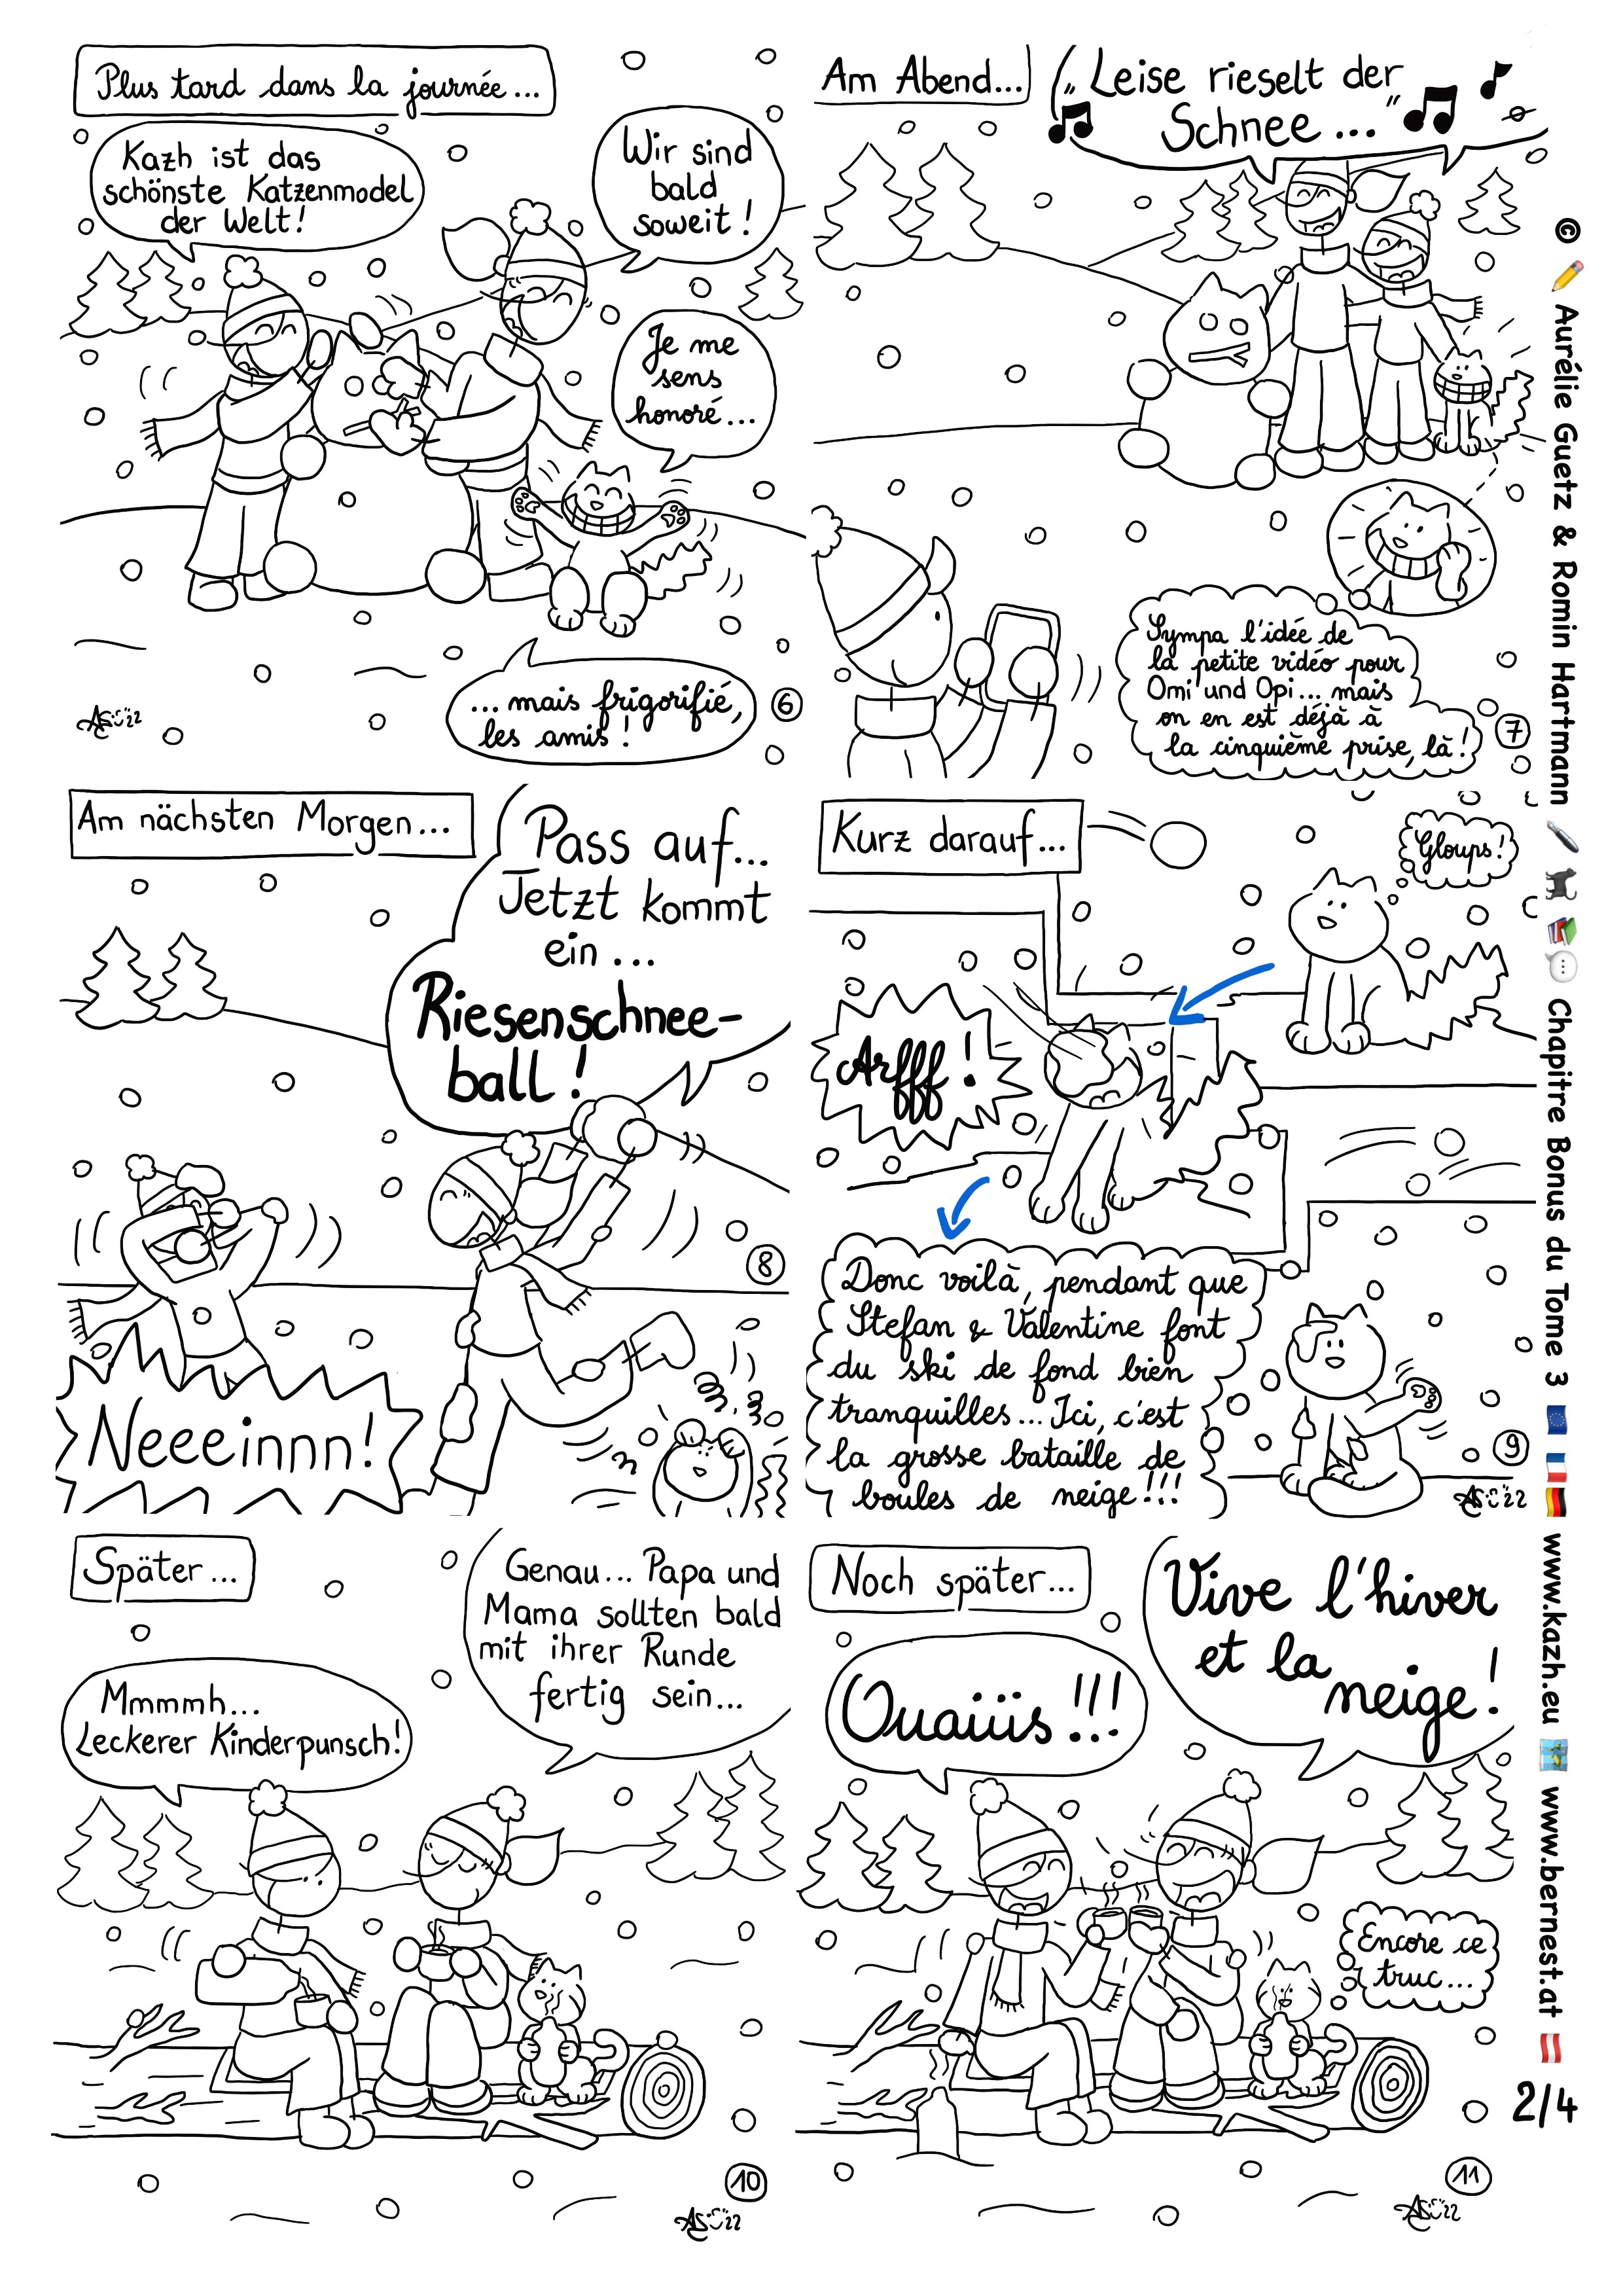 Plus tard dans la journée...
Kazh ist das
schönste Katzenmodel
der Welt!
Wir sind
bald
soweit!
Je me
sens
honoré...
...mais frigorifié,
les amis!
6
Am Abend...
„Leise rieselt der
Schnee..."
Sympa l'idée de
la petite vidéo pour
Omi und Opi... mais
on en est déjà à
la cinquième prise, là!
7
Am nächsten Morgen...
Pass auf...
Jetzt kommt
ein...
Riesenschnee-
ball!
Neeeinnn!
8
Kurz darauf...
Gloups!
Arfff!
Donc voilà, pendant que
Stefan & Valentine font
du ski de fond bien
tranquilles... Ici, c'est
la grosse bataille de
boules de neige!!!
9
Später...
Mmmmh...
Leckerer Kinderpunsch!
Genau... Papa und
Mama sollten bald
mit ihrer Runde
fertig sein...
10
Noch später...
Ouaiiis!!!
Vive l'hiver
et la
neige!
Encore ce
truc...
11
© Aurélie Guetz & Romin Hartmann Chapitre Bonus du Tome 3 www.kazh.eu www.bernest.at
2/4